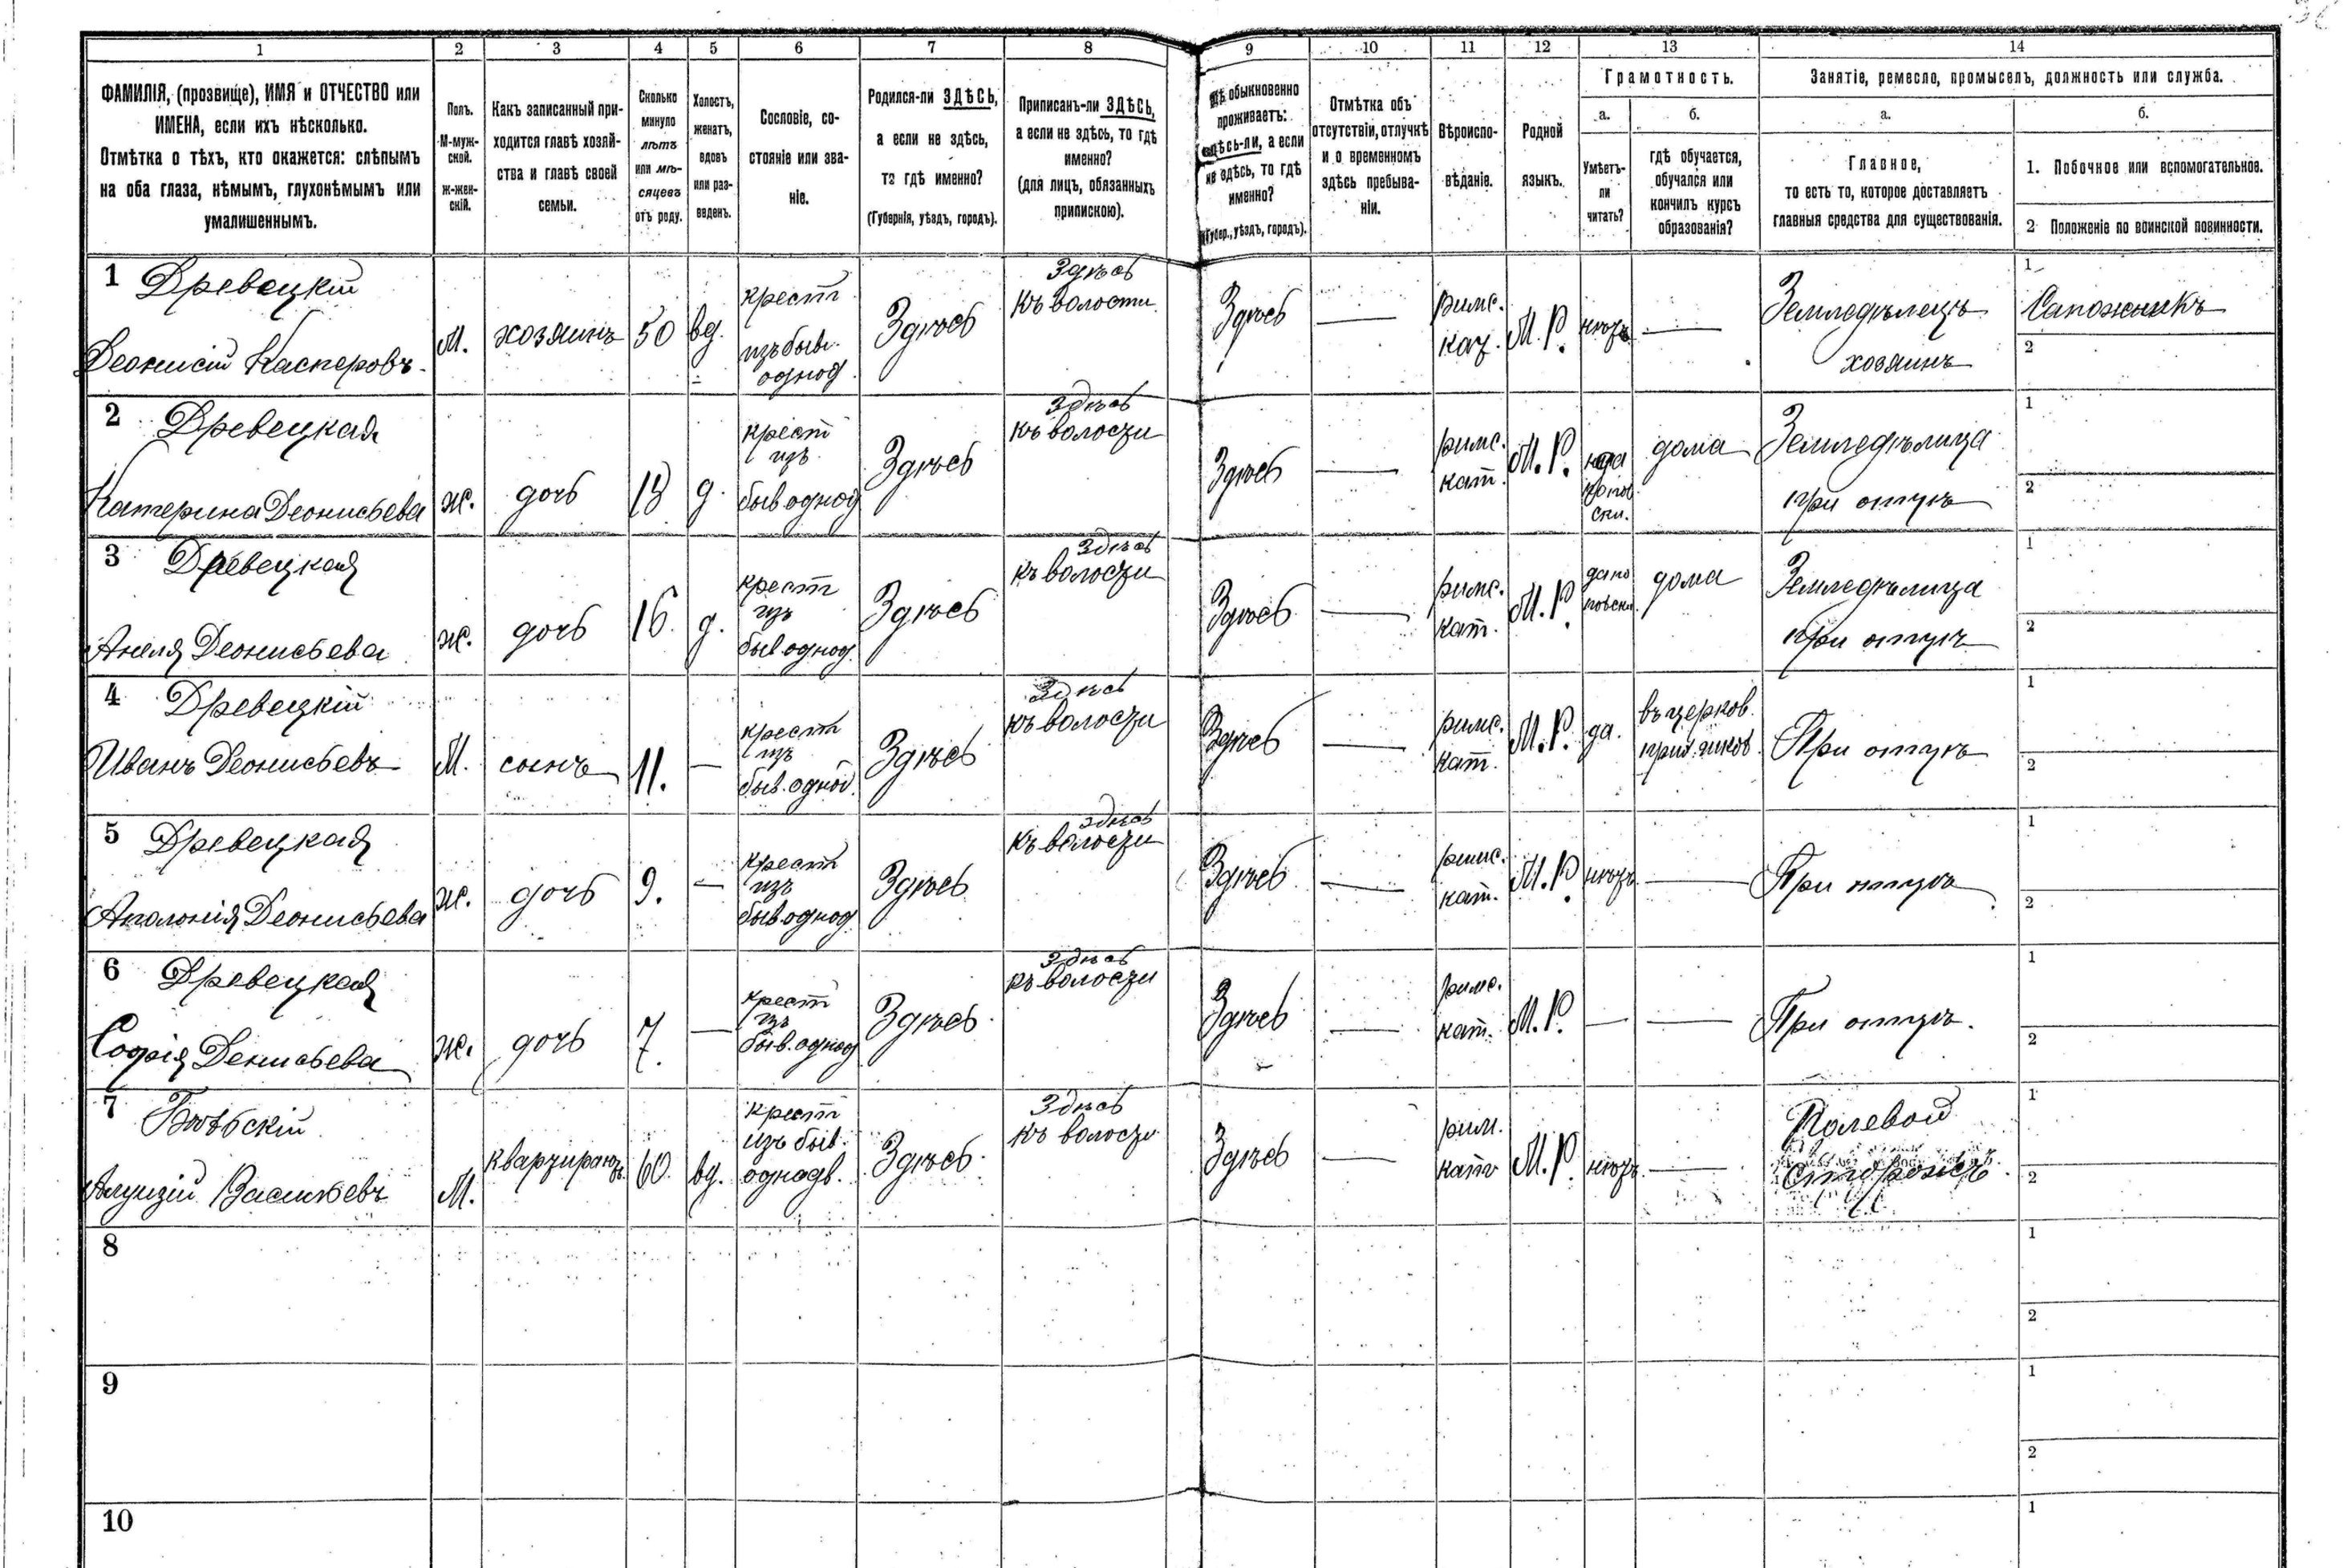 1 2 3 4 5 6 7 8 9 10 11 12 13 14
ФАМИЛІЯ, (прозвище), ИМЯ и ОТЧЕСТВО или
ИМЕНА, если ихъ нѣсколько.
Отмѣтка о тѣхъ, кто окажется: слѣпымъ
на оба глаза, нѣмымъ, глухонѣмымъ или
умалишеннымъ.
Полъ.
М-муж-
ской.
ж-жен-
скій.
Какъ записанный при-
ходится главѣ хозяй-
ства и главѣ своей
семьи.
Сколько
минуло
лѣтъ
или мѣ-
сяцевъ
отъ роду.
Холостъ,
женатъ,
вдовъ
или раз-
веденъ.
Сословіе, со-
стояніе или зва-
ніе.
Родился-ли ЗДѢСЬ,
а если не здѣсь,
то гдѣ именно?
(Губернія, уѣздъ, городъ).
Приписанъ-ли ЗДѢСЬ,
а если не здѣсь, то гдѣ
именно?
(для лицъ, обязанныхъ
припискою).
обыкновенно
проживаетъ:
здѣсь-ли, а если
не здѣсь, то гдѣ
именно?
(Губер., уѣздъ, городъ).
Отмѣтка объ
отсутствіи, отлучкѣ
и о временномъ
здѣсь пребыва-
ніи.
Вѣроиспо-
вѣданіе.
Родной
языкъ.
Грамотность.
а.
Умѣетъ-
ли
читать?
б.
гдѣ обучается,
обучался или
кончилъ курсъ
образованія?
Занятіе, ремесло, промыселъ, должность или служба.
а.
Главное,
то есть то, которое доставляетъ
главныя средства для существованія.
б.
1. Побочное или вспомогательное.
2 Положеніе по воинской повинности.
1 Древецкій
Деонисій Касперовъ
М.
хозяинъ
50
вд.
крест
изъ бывш.
однод.
Здѣсь
Здѣсь
къ волости
Здѣсь
—
римс.
кат.
М.Р.
нѣтъ
—
Земледѣлецъ
хозяинъ
1
Сапожникъ
2
2 Древецкая
Катерина Деонисьева
ж.
дочь
18
д.
крест
изъ
быв однод
Здѣсь
Здѣсь
къ волости
Здѣсь
—
римс.
кат.
М.Р.
дома
Земледѣлица
при отцѣ
1
2
3 Древецкая
Анеля Деонисьева
ж.
дочь
16.
д.
крест
изъ
быв однод.
Здѣсь
Здѣсь
къ волости
Здѣсь
—
римс.
кат.
М.Р.
да по
дома
Земледѣлица
при отцѣ
1
2
4 Древецкій
Иванъ Деонисьевъ
М.
сынъ
11.
—
крест
изъ
быв. однод.
Здѣсь
Здѣсь
къ волости
Здѣсь
—
римс.
кат.
М.Р.
да.
въ церков.
При отцѣ
1
2
5 Древецкая
Аполонія Деонисьева
ж.
дочь
9.
—
крест
изъ
быв однод
Здѣсь
здѣсь
къ волости
Здѣсь
—
римс.
кат.
М.Р
нѣтъ
—
При отцѣ
1
2
6 Древецкая
Софія Денисьева
ж.
дочь
7.
—
крест
изъ
быв. однод
Здѣсь
Здѣсь
къ волости
Здѣсь
—
римс.
кат.
М.Р.
—
—
При отцѣ.
1
2
7
М.
квартирантъ
60.
вд.
крест
изъ быв.
однодв.
Здѣсь
Здѣсь
къ волости
Здѣсь
—
рим.
като
М.Р.
нѣтъ
—
Полевой
Сторожъ
1
2
8
1
2
9
1
2
10
1